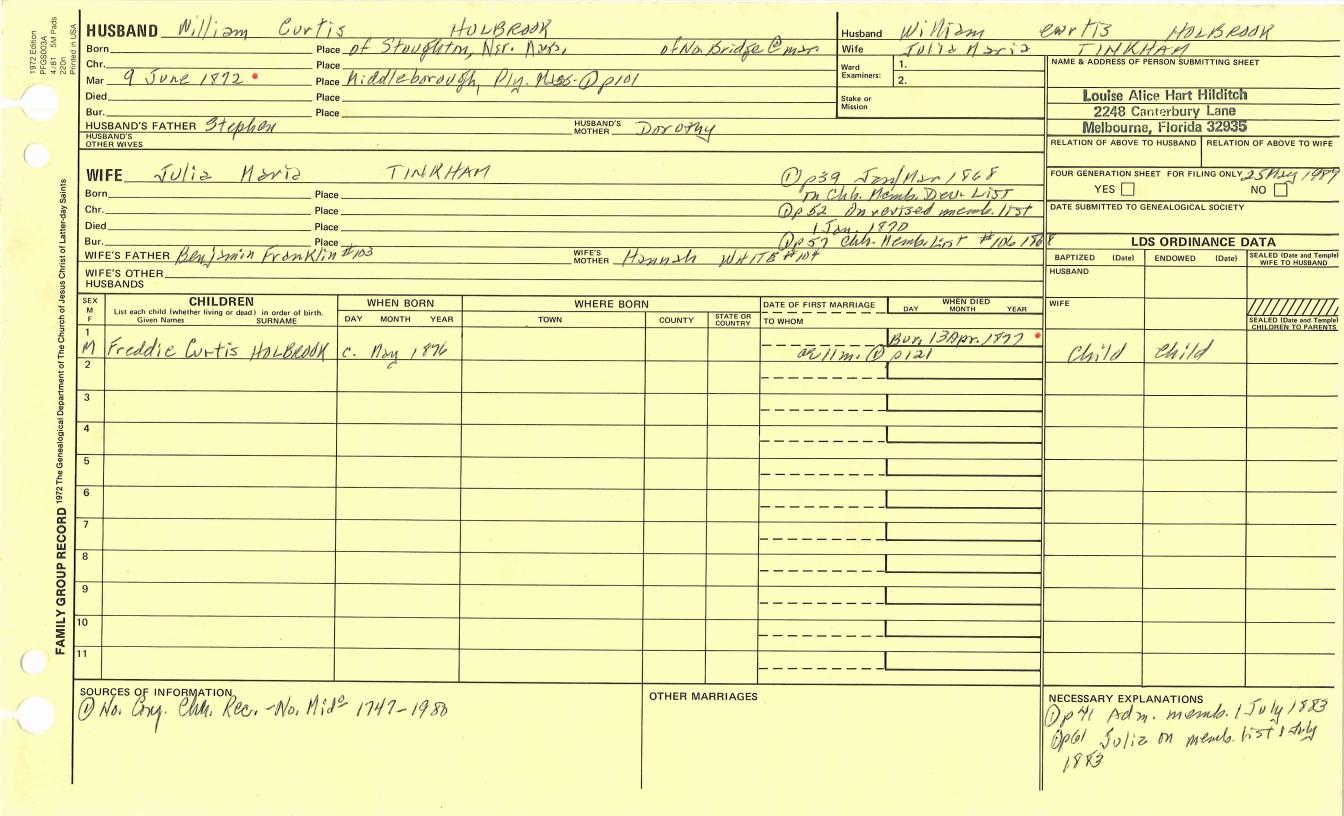 1972 Edition
PFGS003A
4/81 5M Pads
220n
Printed in USA
FAMILY GROUP RECORD 1972 The Genealogical Department of The Church of Jesus Christ of Latter-day Saints
HUSBAND William Curtis HOLBROOK
Born Place of Stoughton, Nor. Mass, of No. Bridge @ mar.
Chr. Place
Mar 9 June 1872 Place Middleborough, Ply. Mass. ① p101
Died Place
Bur. Place
HUSBAND'S FATHER Stephen HUSBAND'S MOTHER Dorothy
HUSBAND'S OTHER WIVES
Husband William Curtis HOLBROOK
Wife Julia Maria TINKHAM
Ward Examiners: 1.
2.
Stake or Mission
NAME & ADDRESS OF PERSON SUBMITTING SHEET
Louise Alice Hart Hilditch
2248 Canterbury Lane
Melbourne, Florida 32935
RELATION OF ABOVE TO HUSBAND RELATION OF ABOVE TO WIFE
FOUR GENERATION SHEET FOR FILING ONLY 25 May 1989
YES NO
DATE SUBMITTED TO GENEALOGICAL SOCIETY
WIFE Julia Maria TINKHAM
① p39 Jan/Mar 1868
on Chh. Memb. List
Born Place
Chr. Place
① p52 On revised memb. list
1 Jan. 1870
Died Place
Bur. Place
① p57 Chh. Memb. List #106 1868
WIFE'S FATHER Benjamin Franklin #103 WIFE'S MOTHER Hannah WHITE #104
WIFE'S OTHER HUSBANDS
LDS ORDINANCE DATA
BAPTIZED (Date) ENDOWED (Date) SEALED (Date and Temple) WIFE TO HUSBAND
HUSBAND
WIFE
SEALED (Date and Temple) CHILDREN TO PARENTS
SEX M F
CHILDREN
List each child (whether living or dead) in order of birth.
Given Names SURNAME
WHEN BORN
DAY MONTH YEAR
WHERE BORN
TOWN COUNTY STATE OR COUNTRY
DATE OF FIRST MARRIAGE
TO WHOM
WHEN DIED
DAY MONTH YEAR
1 Bur. 13 Apr. 1877
M Freddie Curtis HOLBROOK c. May 1876 ae 11m. ① p121 Child Child
2
3
4
5
6
7
8
9
10
11
SOURCES OF INFORMATION
① No. Cong. Chh. Rec. - No. Mid° 1747-1980
OTHER MARRIAGES
NECESSARY EXPLANATIONS
① p41 Adm. memb. 1 July 1883
① p61 Julia on memb. list 1 July
1883